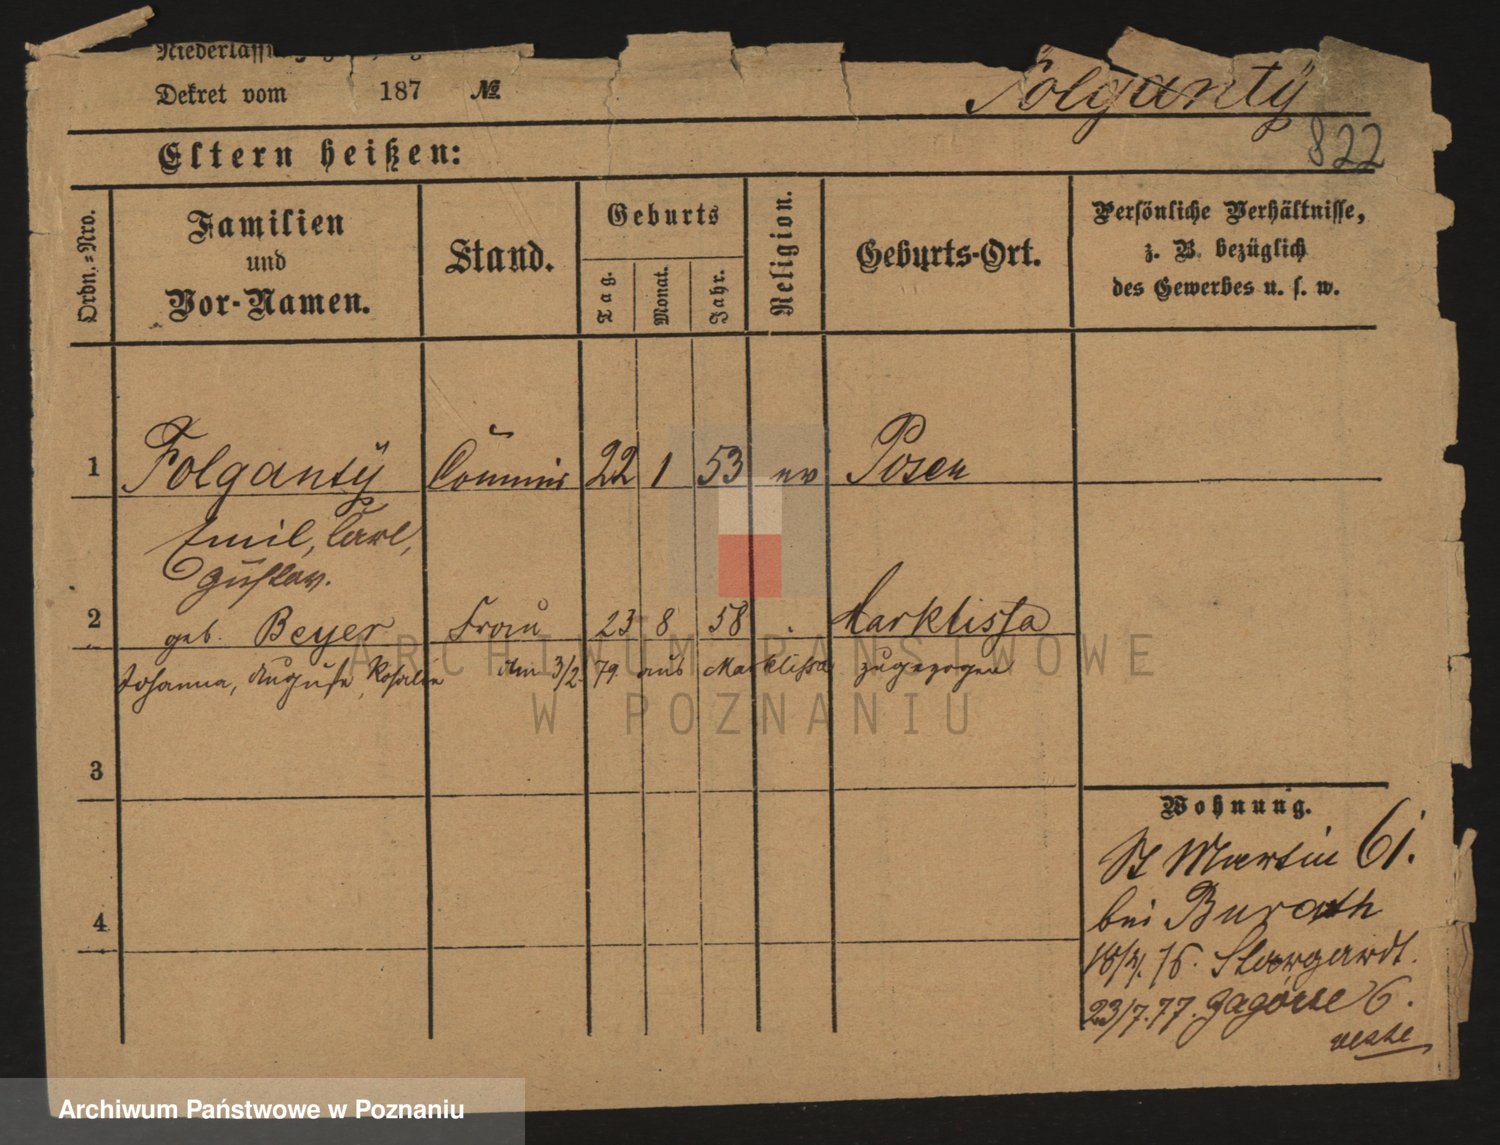 Niederlassung
Dekret vom 187 №
Folgantÿ
822
Eltern heißen:
Ordn.=Nro.
Familien
und
Vor-Namen.
Stand.
Geburts
Tag.
Monat.
Jahr.
Religion.
Geburts-Ort.
Persönliche Verhältnisse,
z. B. bezüglich
des Gewerbes u. s. w.
1 Folgantÿ Commis 22 1 53 ev Posen
Emil, Carl,
Gustav.
2 geb. Beyer Frau 23 8 58 Marklissa
Johanna, Auguste, Rosalie am 3/2. 79. aus Marklissa zugezogen
3
4
Wohnung.
St Martin 61.
bei Burath
Stargardt.
23/7.77. 6.
ARCHIWUM PAŃSTWOWE
W POZNANIU
Archiwum Państwowe w Poznaniu